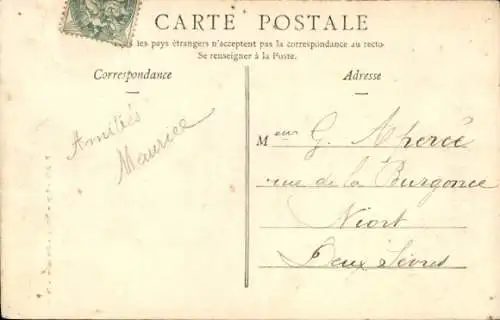 CARTE POSTALE
Tous les pays étrangers n'acceptent pas la correspondance au recto.
Se renseigner à la Poste.
Correspondance
Amitiés
Maurice
Adresse
Meur G.
rue de la Burgonce
Niort
Deux Sèvres